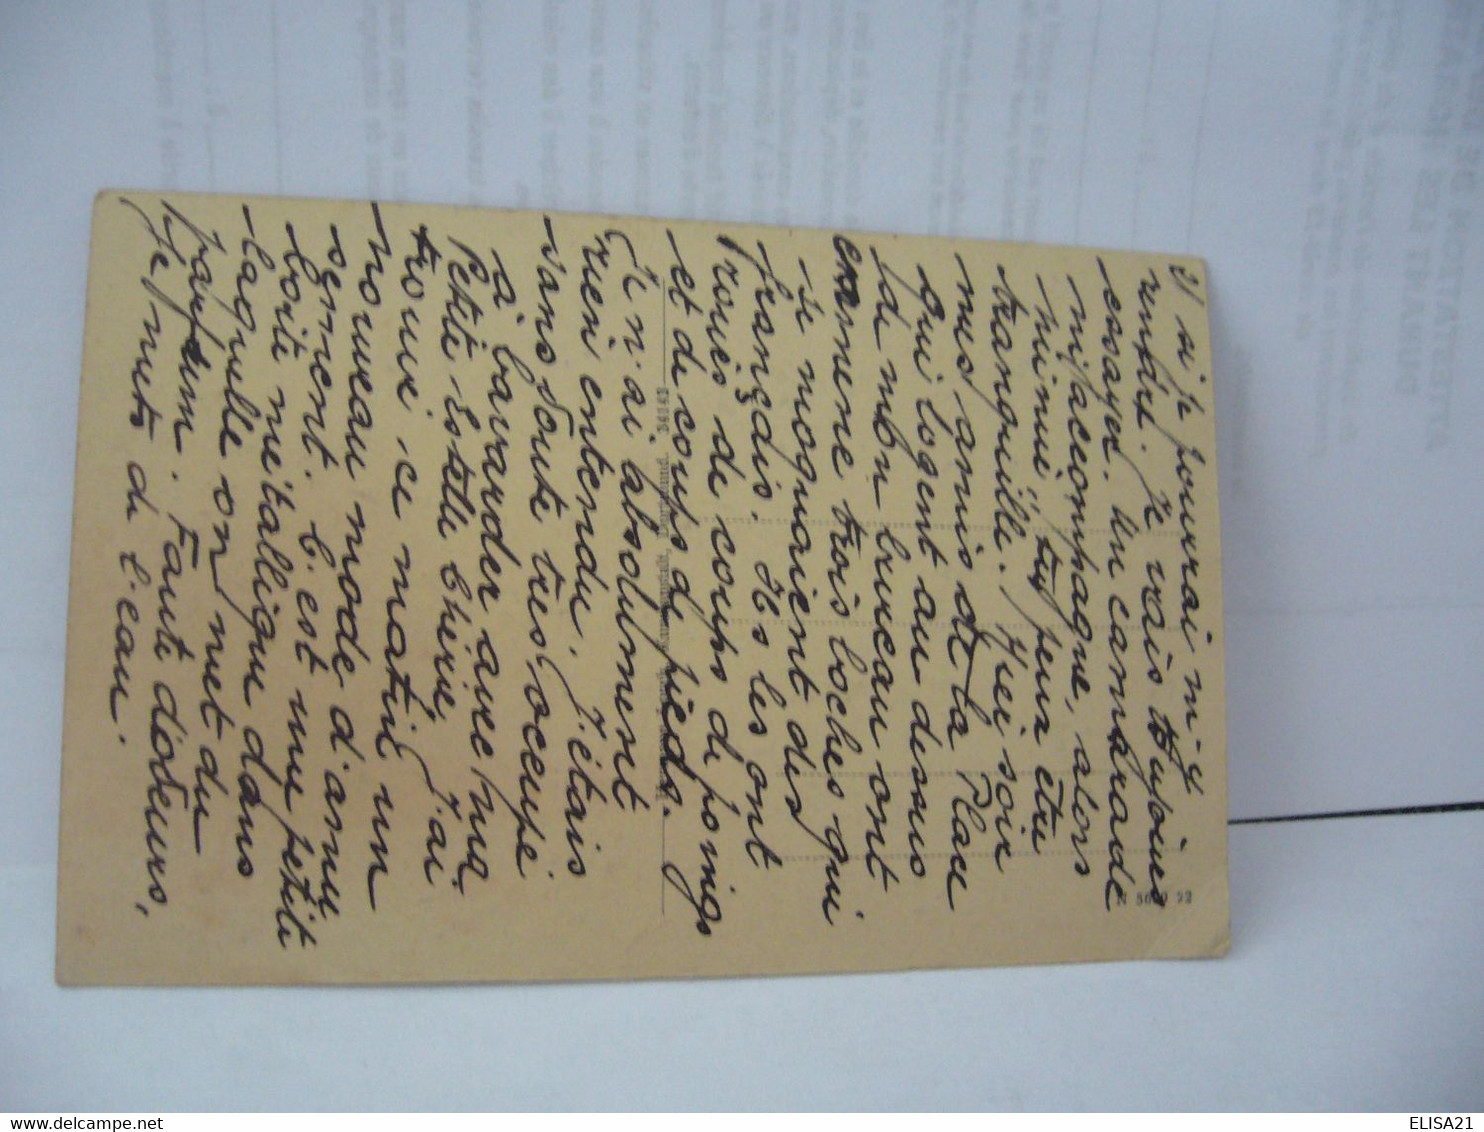 3/ si je pourrai m'y
rendre. Je vais toujours
essayer. Un camarade
m'accompagne, alors
nuinui, tu peux être
tranquille. Hier soir
mes amis de la Place
qui logent au dessus
de mon bureau ont
emmené trois boches qui
se moquaient des
français. Ils les ont
roués de coups de poings
et de coups de pieds.
Je n'ai absolument
rien entendu. J'étais
sans doute très occupé
à bavarder avec ma
Petite Estelle Chérie. J'ai
trouvé ce matin un
nouveau mode d'amu
sement. C'est une petite
boite métallique dans
laquelle on met du
parfum. Faute d'odeurs,
je mets de l'eau.
34343
N 5660 22
ELISA21